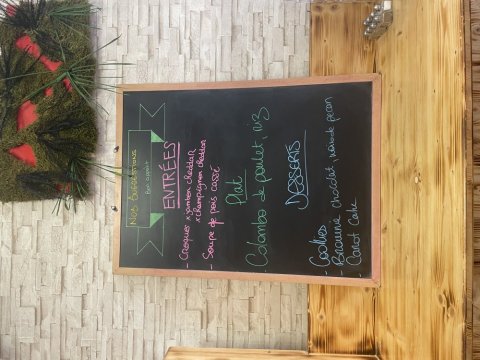 Nos Suggestions
Bon appétit
ENTRÉES
- Croques x jambon cheddar
x champignon cheddar
- Soupe de pois cassé
Plat
- Colombo de poulet, riz
DESSERTS
- Cookies
- Brownie chocolat, noix de pecan
- Carrot Cake